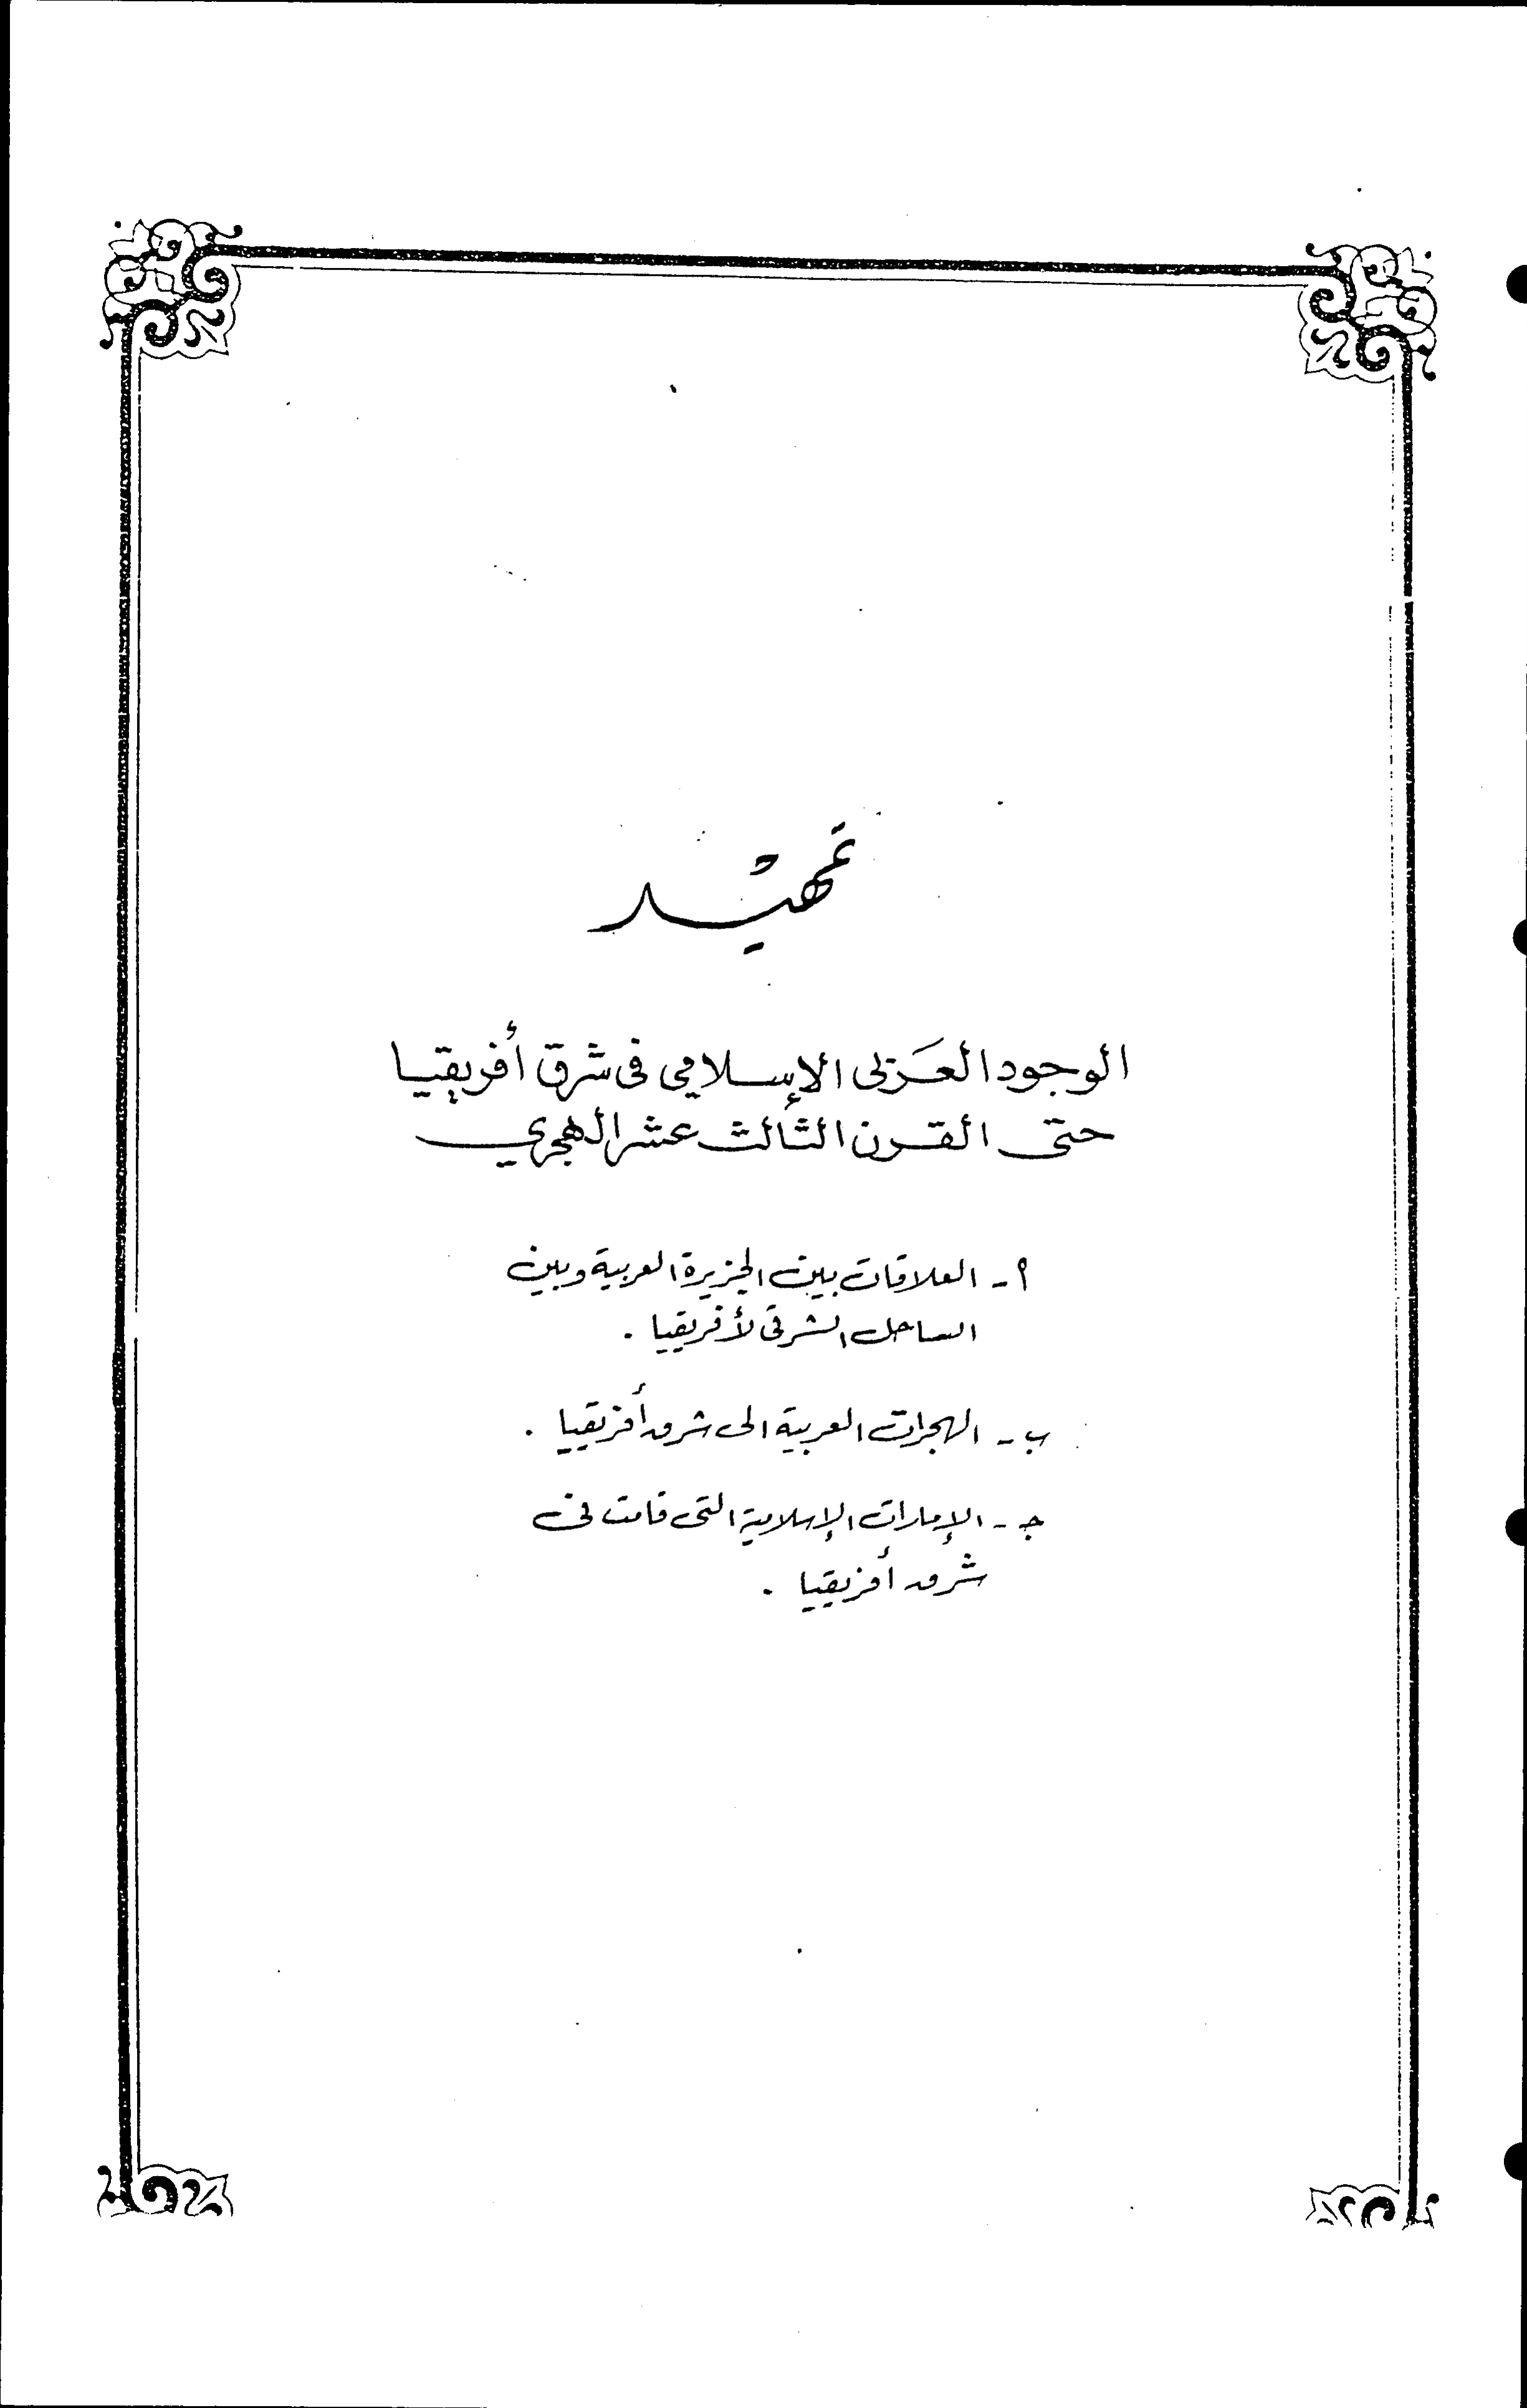 تمهيد
الوجود العَربى الإسلامي فى شرق أفريقيا
حتى القرن الثالث عشر الهجري
أ - العلاقات بين الجزيرة العربية وبين
الساحل الشرقى لأفريقيا .
ب - الهجرات العربية الى شرق أفريقيا .
ج - الإمارات الإسلامية التى قامت فى
شرق أفريقيا .